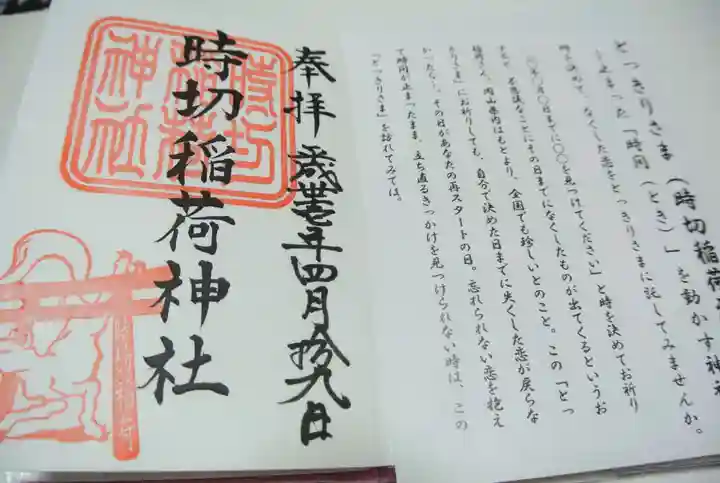 とっきりさま（時切稲荷
止まった「時間（とき）」を動かす神
時を決めて、なくした恋をとっきりさまに託してみませんか。
〇年〇月〇日までに〇〇を見つけてください」と時を決めてお祈り
すると、不思議なことにその日までになくしたものが出てくるというお
稲荷さん。岡山県内はもとより、全国でも珍しいとのこと。この「とっ
きりさま」にお祈りしても、自分で決めた日までに失くした恋が戻らな
かったら…、その日があなたの再スタートの日。忘れられない恋を抱え
て時間が止まったまま、立ち直るきっかけを見つけられない時は、この
「とっきりさま」を訪れてみては。
奉拝 平成丗壱年四月拾九日
時切稲荷神社
時切
稲荷
神社